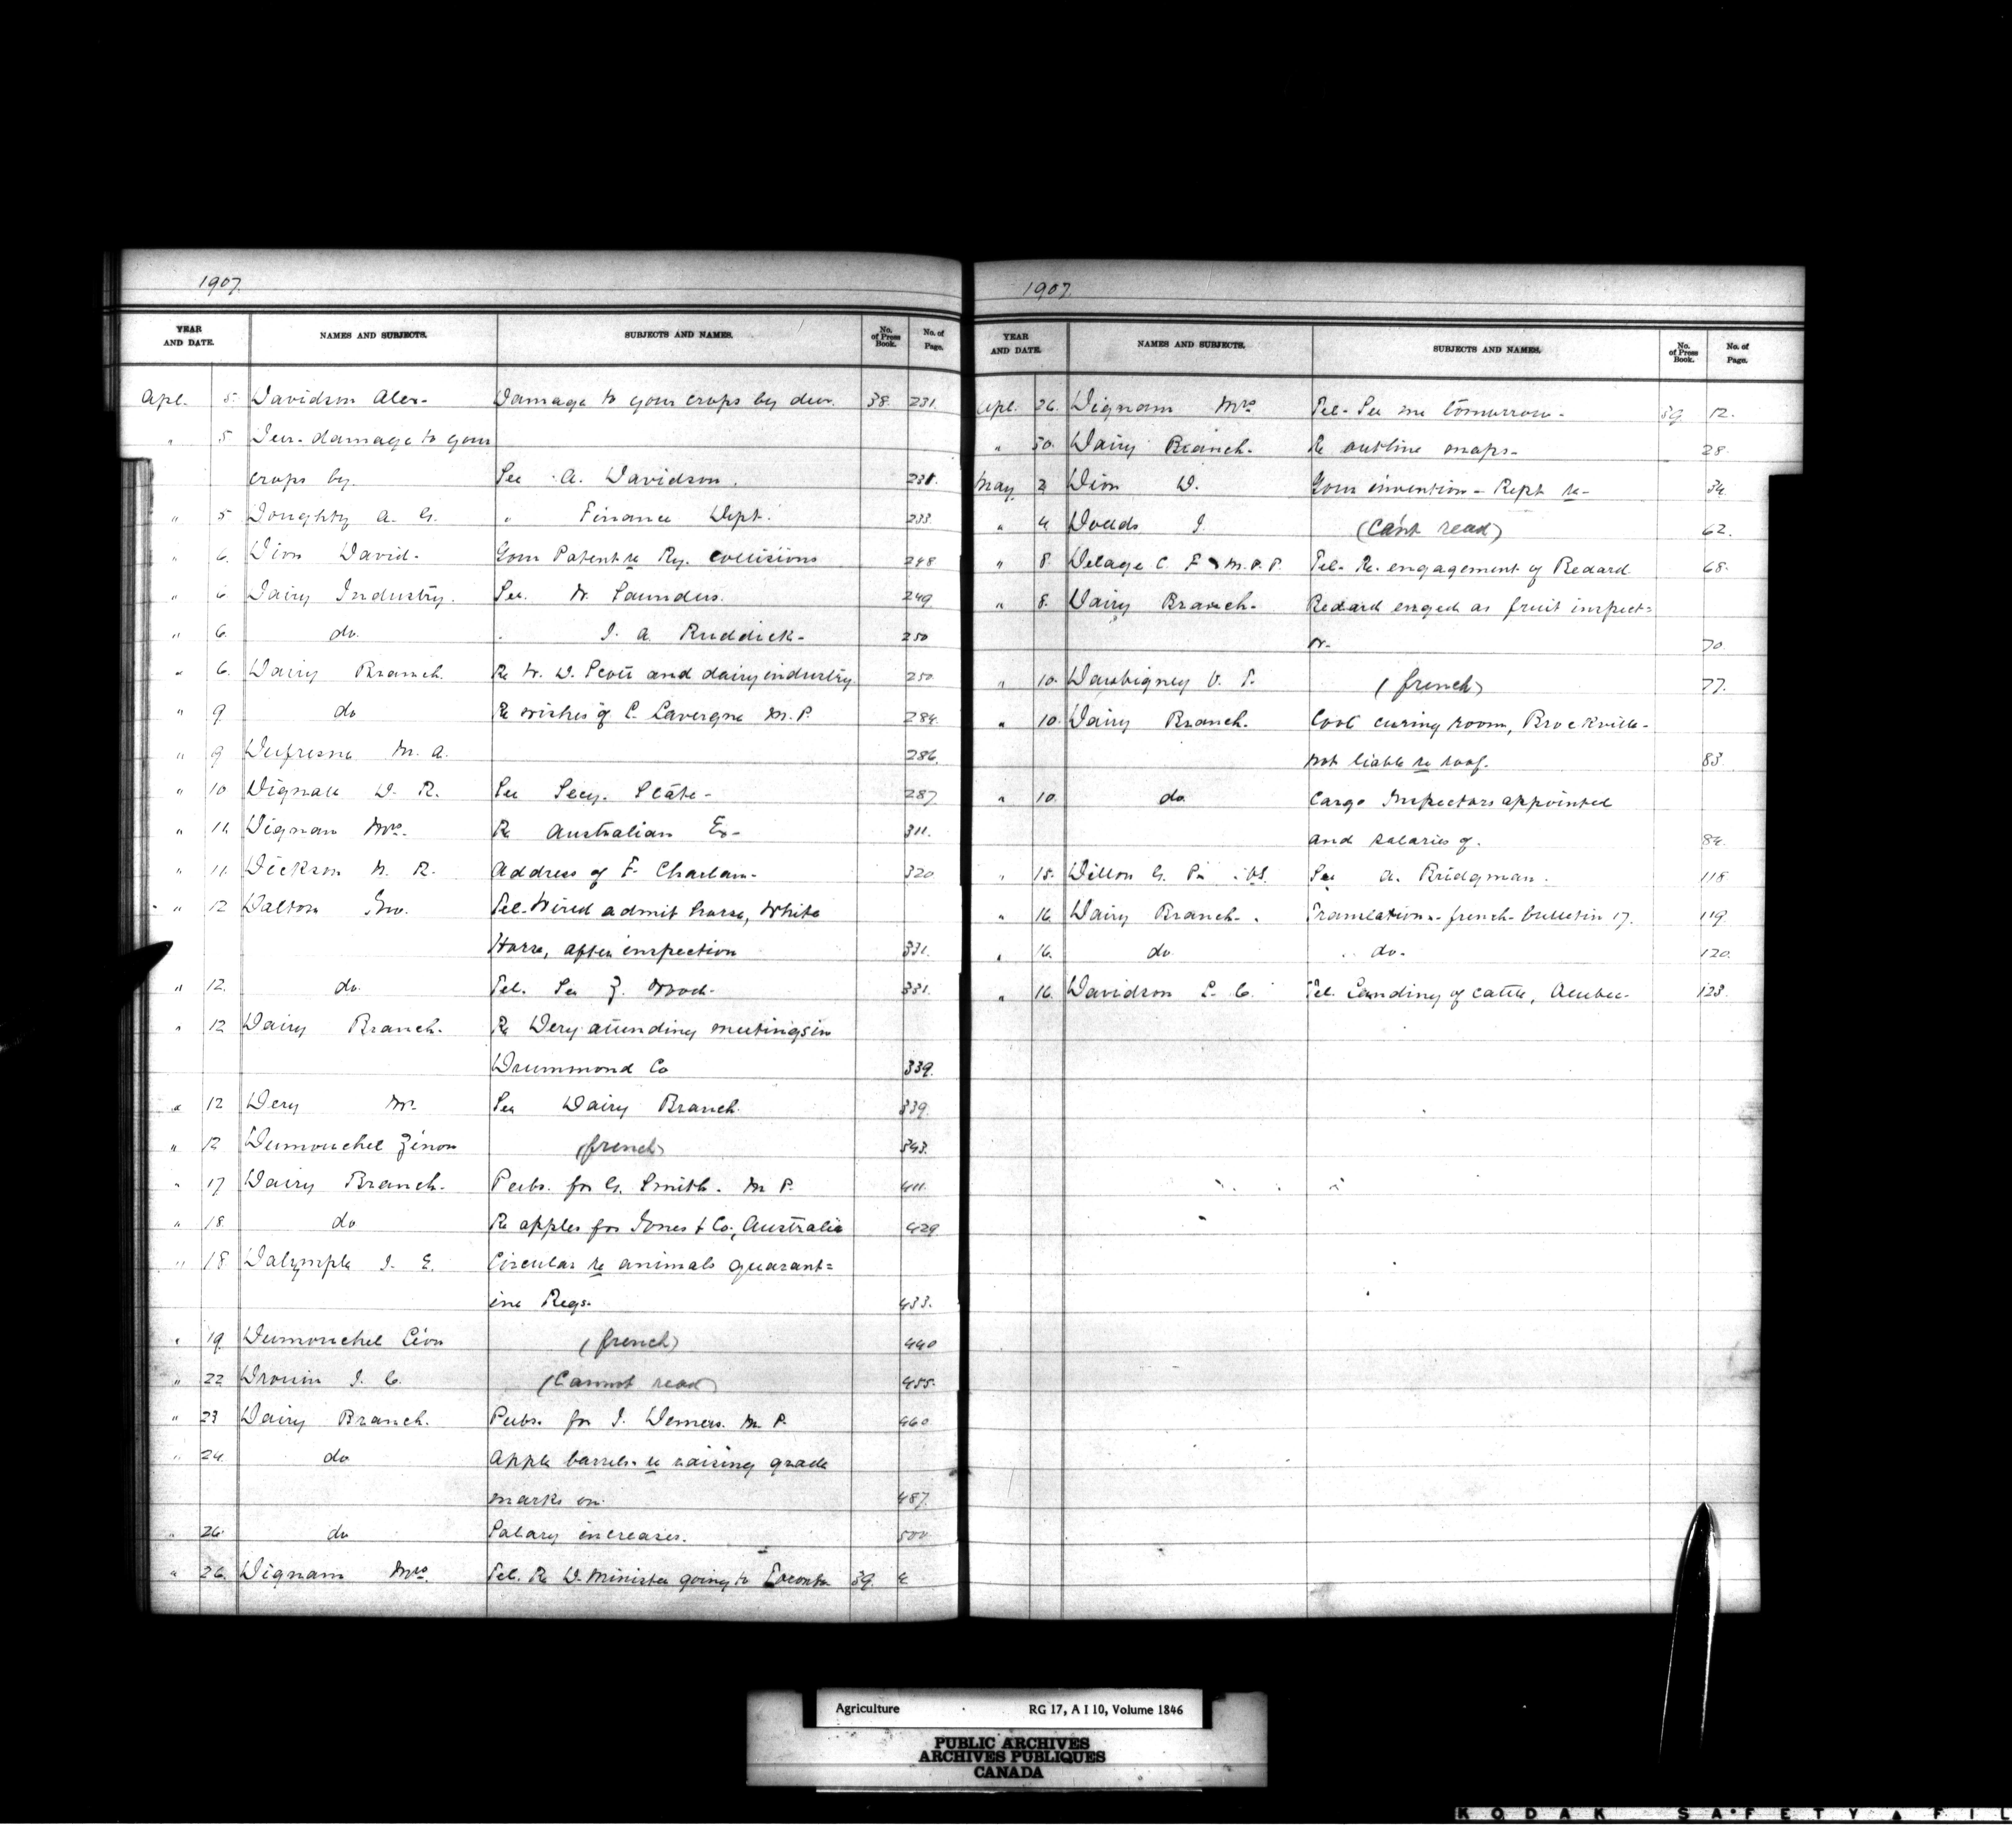 1907.
YEAR AND DATE. NAMES AND SUBJECTS. SUBJECTS AND NAMES. No. of Press Book. No. of Page.
Apl. 5. Davidson Alex- Damage to your crops by deer. 38. 231.
" 5 Deer-damage to your
crops by. See A. Davidson. 231.
" 5 Doughty A. G. " Finance Dept. 233.
" 6. Dion David- Your Patent re Ry. collisions 248
" 6 Dairy Industry. See. W. Saunders. 249
" 6. do. J. A. Ruddick- 250
" 6. Dairy Branch. Re W. D. Scott and dairy industry 250
" 9 do Re wishes of L. Lavergne M.P. 284.
" 9 Dufresne M. A. 286.
" 10 Dignall D. R. See Secy. State- 287
" 11. Dignam Mrs. Re Australian Ex- 311.
" 11. Dickson N. R. Address of F. Charlan- 320
" 12 Dalton Geo. Tel-Wired admit horse, White
Horse, after inspection 331.
" 12. do. Tel. See Z. Wood- 331.
" 12 Dairy Branch. Re Dery attending meetings in
Drummond Co 339.
" 12 Dery M. See Dairy Branch. 339.
" 12 Dumouchel Zénon (french) 343.
" 17 Dairy Branch. Pubs. for G. Smith. M P. 411.
" 18. do Re apples for Jones & Co., Australia 429
" 18 Dalymple J. E. Circular re animals quarant=
ine Regs. 433.
" 19. Dumouchel Léon (french) 440
" 22 Drouin J. C. (Cannot read) 455.
" 23 Dairy Branch. Pubs. for J. Demers. M P. 460
" 24. do Apple barrels-re raising grade
marks on. 487.
" 26. do Salary increases. 500
" 26. Dignam Mrs. Tel. Re D. Minister going to Toronto 39. 4
1907.
YEAR AND DATE. NAMES AND SUBJECTS. SUBJECTS AND NAMES. No. of Press Book. No. of Page.
Apl. 26. Dignam Mrs Tel- See me tomorrow- 39 12.
" 30. Dairy Branch. Re outline maps- 28
May 2 Dion D. Your invention- Rept re- 34.
" 4 Dodds J. (Can't read) 62.
" 8. Delage C. F. M.P.P. Tel- Re. engagement of Bedard. 68.
" 8. Dairy Branch- Bedard enged as fruit inspect=
or- 70.
" 10. Daubigney V. T. (french) 77.
" 10. Dairy Branch. Cool curing room, Brockville-
not liable re roof. 83.
" 10. do. Cargo Inspectors appointed
and salaries of. 84.
" 15. Dillon G. P. See A. Bridgman. 118
" 16. Dairy Branch- Translation-french-bulletin 17. 119.
" 16. do. do. 120.
" 16. Davidson L. C. Tel. Landing of cattle, Quebec- 123.
Agriculture RG 17, A I 10, Volume 1846
PUBLIC ARCHIVES
ARCHIVES PUBLIQUES
CANADA
KODAK SAFETY ▲ FIL